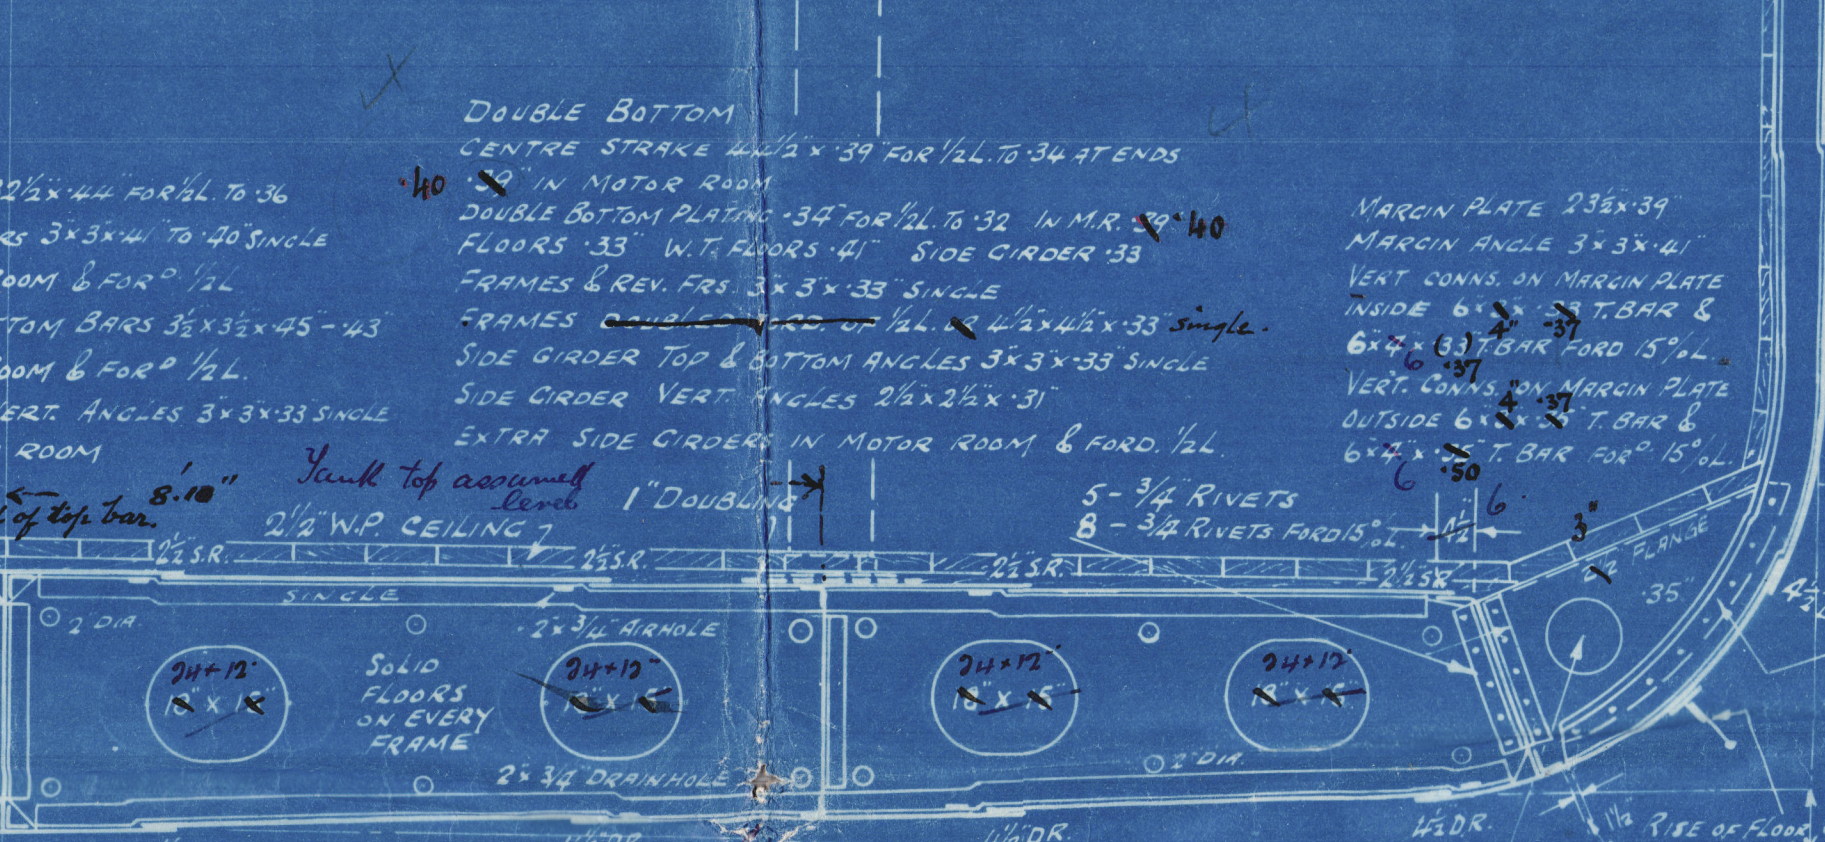 DOUBLE BOTTOM
CENTRE STRAKE 44½" x ·39" FOR ½L. TO ·34 AT ENDS
·40 ·39" IN MOTOR ROOM
DOUBLE BOTTOM PLATING ·34" FOR ½L. TO ·32 IN M.R. ·39" ·40
FLOORS ·33" W.T. FLOORS ·41" SIDE GIRDER ·33
FRAMES & REV. FRS. 3" x 3" x ·33" SINGLE
FRAMES DOUBLE ½L. OR 4½" x 4½" x ·33" single.
SIDE GIRDER TOP & BOTTOM ANGLES 3" x 3" x ·33" SINGLE
SIDE GIRDER VERT. ANGLES 2½" x 2½" x ·31"
EXTRA SIDE GIRDERS IN MOTOR ROOM & FORD. ½L.
22½" x ·44" FOR ½L. TO ·36
RS 3" x 3" x ·41" TO ·40" SINGLE
OOM & FORD ½L
TTOM BARS 3½" x 3½" x ·45" - ·43"
OOM & FORD ½L.
ERT. ANGLES 3" x 3" x ·33" SINGLE
ROOM
MARGIN PLATE 23½" x ·39"
MARGIN ANGLE 3" x 3" x ·41"
VERT CONNS. ON MARGIN PLATE
INSIDE 6" x T. BAR &
4" ·37
6" x 4" x T. BAR FORD 15% L.
6 ·37
VERT. CONNS. ON MARGIN PLATE
4" ·37
OUTSIDE 6" x T. BAR &
6" x 4" x T. BAR FORD 15% L.
6 ·50
8'.10"
of top bar.
Tank top assumed
level
1" DOUBLING
2½" W.P. CEILING
5 - ¾" RIVETS
8 - ¾ RIVETS FORD 15% L.
4½ 6
3"
2½ FLANGE
·35"
4½
2½" S.R.
2½" S.R.
2½" S.R.
2½" S.R.
SINGLE
2" DIA.
2" x ¾" AIRHOLE
24 x 12"
18" x 15"
SOLID
FLOORS
ON EVERY
FRAME
24 x 12"
18" x 15"
24 x 12"
18" x 15"
24 x 12"
18" x 15"
2" x ¾" DRAINHOLE
2" DIA.
4½" DR.
4½" DR.
4½ DR.
1½
RISE OF FLOOR